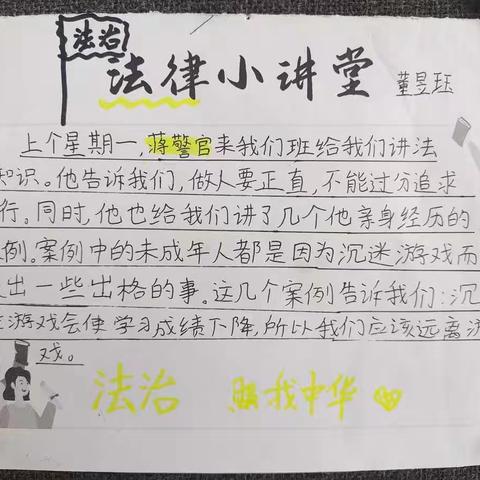 法治
法律小讲堂
董昱珏
上个星期一,蒋警官来我们班给我们讲法
知识。他告诉我们,做人要正直,不能过分追求
行。同时,他也给我们讲了几个他亲身经历的
例。案例中的未成年人都是因为沉迷游戏而
出一些出格的事。这几个案例告诉我们:沉
游戏会使学习成绩下降,所以我们应该远离游
戏。
法治 照我中华